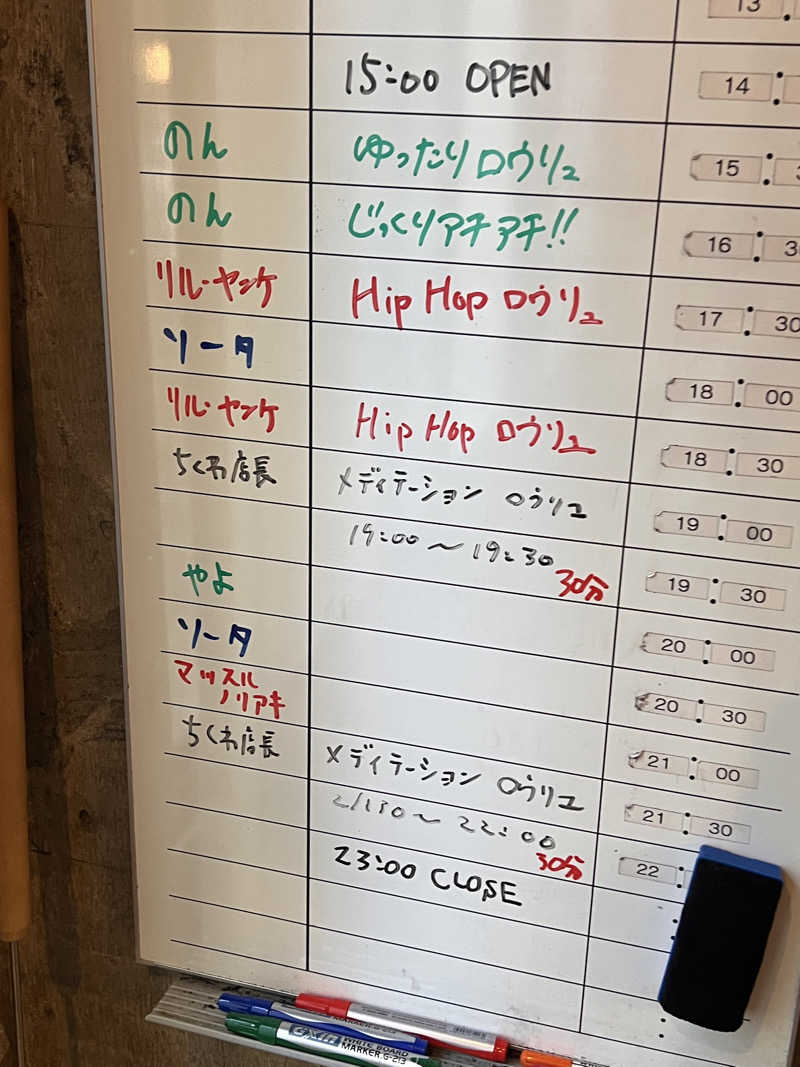 13
15:00 OPEN 14
のん ゆったりロウリュ 15 : 3
のん じっくりアチアチ!! 16 : 3
リル・ヤンケ Hip Hop ロウリュ 17 : 30
ソータ 18 : 00
リル・ヤンケ Hip Hop ロウリュ 18 : 30
ちくわ店長 メディテーション ロウリュ 19 : 00
19:00〜19:30 30分 19 : 30
やよ 20 : 00
ソータ 20 : 30
マッスル
ノリアキ 21 : 00
ちくわ店長 メディテーション ロウリュ 21 : 30
21:30〜22:00 30分 22 :
23:00 CLOSE
WHITE BOARD
MARKER.G-213